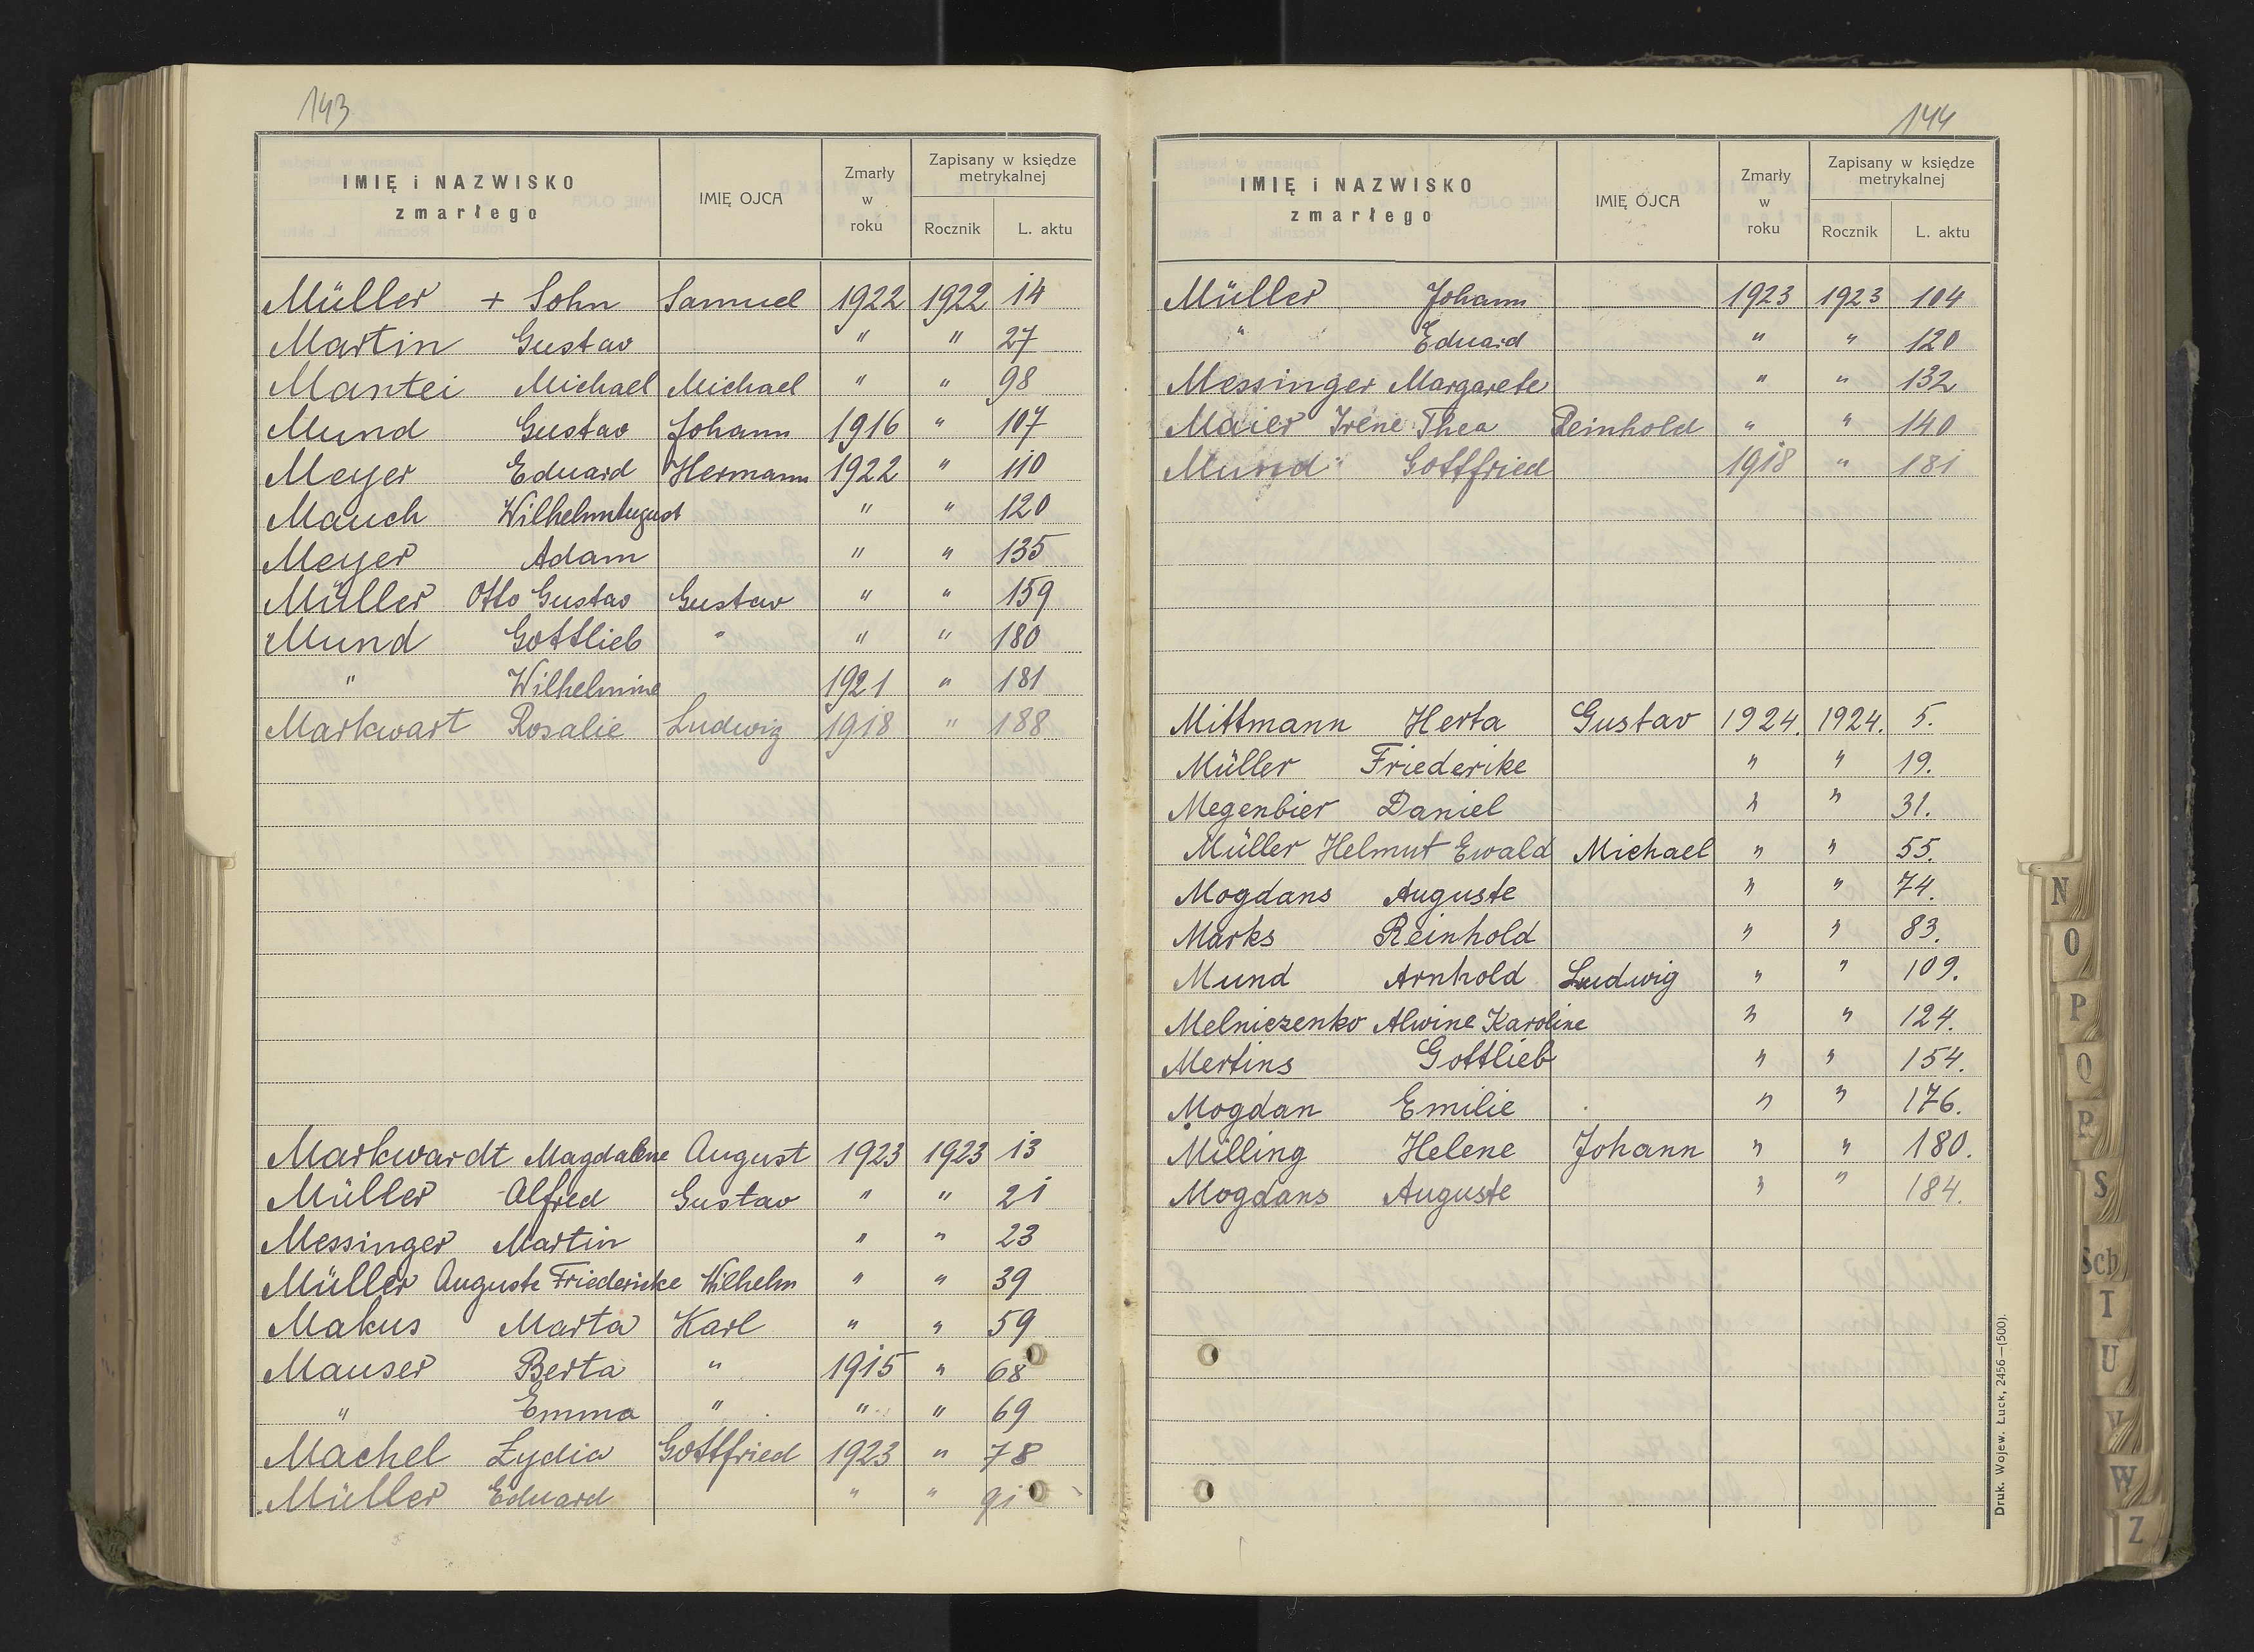 143
IMIĘ i NAZWISKO zmarłego IMIĘ OJCA Zmarły w roku Zapisany w księdze metrykalnej
Rocznik L. aktu
Müller + Sohn Samuel 1922 1922 14
Martin Gustav " " 27
Mantei Michael Michael " " 98
Mund Gustav Johann 1916 " 107
Meyer Eduard Hermann 1922 " 110
Mauch Wilhelm August " " 120
Meyer Adam " " 135
Müller Otto Gustav Gustav " " 159
Mund Gottlieb " " " 180
" Wilhelmine 1921 " 181
Markwart Rosalie Ludwig 1918 " 188
Markwardt Magdalene August 1923 1923 13
Müller Alfred Gustav " " 21
Messinger Martin " " 23
Müller Auguste Friedericke Wilhelm " " 39
Makus Marta Karl " " 59
Mauser Berta " 1915 " 68
" Emma " " " 69
Machel Lydia Gottfried 1923 " 78
Müller Eduard " " 91
144
IMIĘ i NAZWISKO zmarłego IMIĘ OJCA Zmarły w roku Zapisany w księdze metrykalnej
Rocznik L. aktu
Müller Johann 1923 1923 104
" Eduard " " 120
Messinger Margarete " " 132
Maier Irene Thea Reinhold " " 140
Mund Gottfried 1918 " 181
Mittmann Herta Gustav 1924. 1924. 5.
Müller Friederike " " 19.
Megenbier Daniel " " 31.
Müller Helmut Ewald Michael " " 55.
Mogdans Auguste " " 74.
Marks Reinhold " " 83.
Mund Arnhold Ludwig " " 109.
Melniczenko Alwine Karoline " " 124.
Mertins Gottlieb " " 154.
Mogdan Emilie " " 176.
Milling Helene Johann " " 180.
Mogdans Auguste " " 184.
Druk. Wojew. Łuck, 2456—(500).
N
O
P
Q
R
S
Sch
T
U
V
W
Z